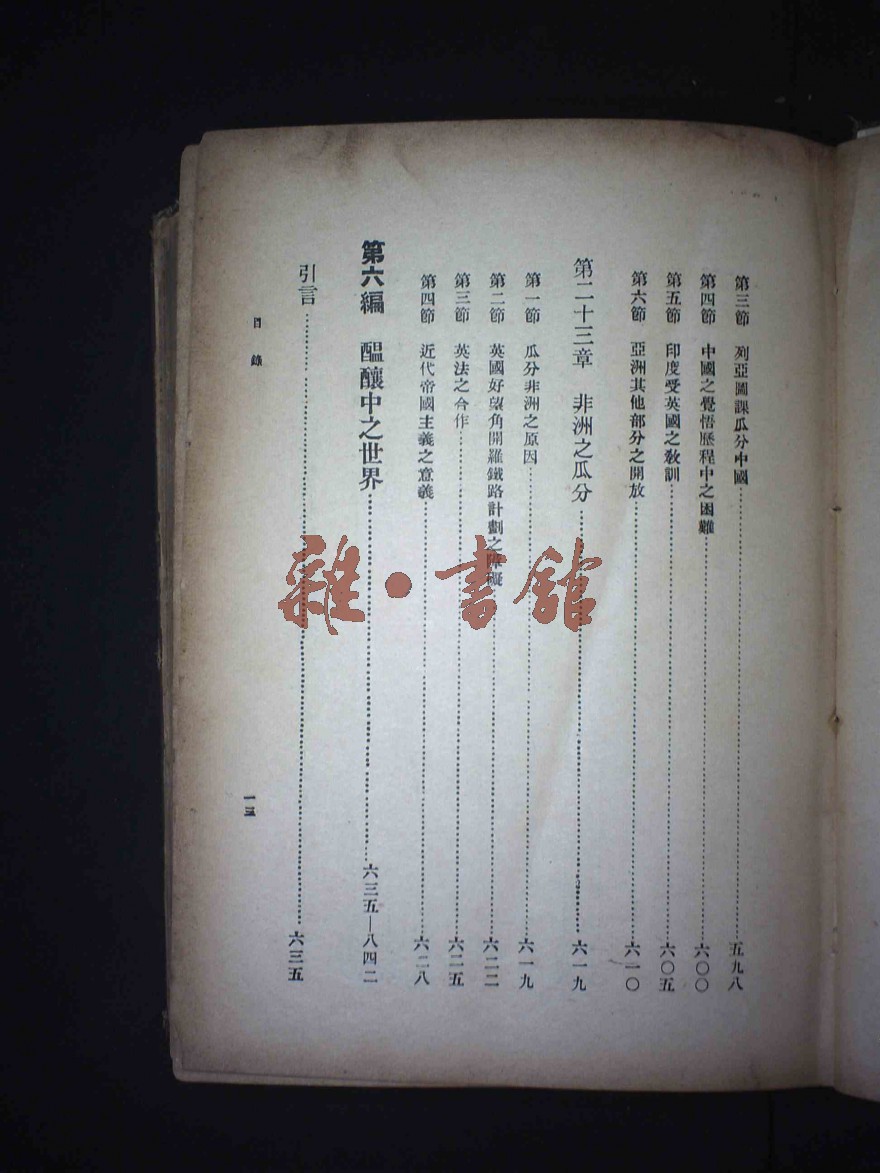 第三節 列亞圖謀瓜分中國 五九八
第四節 中國之覺悟歷程中之困難 六〇〇
第五節 印度受英國之教訓 六〇五
第六節 亞洲其他部分之開放 六一〇
第二十三章 非洲之瓜分 六一九
第一節 瓜分非洲之原因 六一九
第二節 英國好望角開羅鐵路計劃之障礙 六二二
第三節 英法之合作 六二五
第四節 近代帝國主義之意義 六二八
第六編 醞釀中之世界 六三五—八四二
引言 六三五
目錄
一三
雜·書館